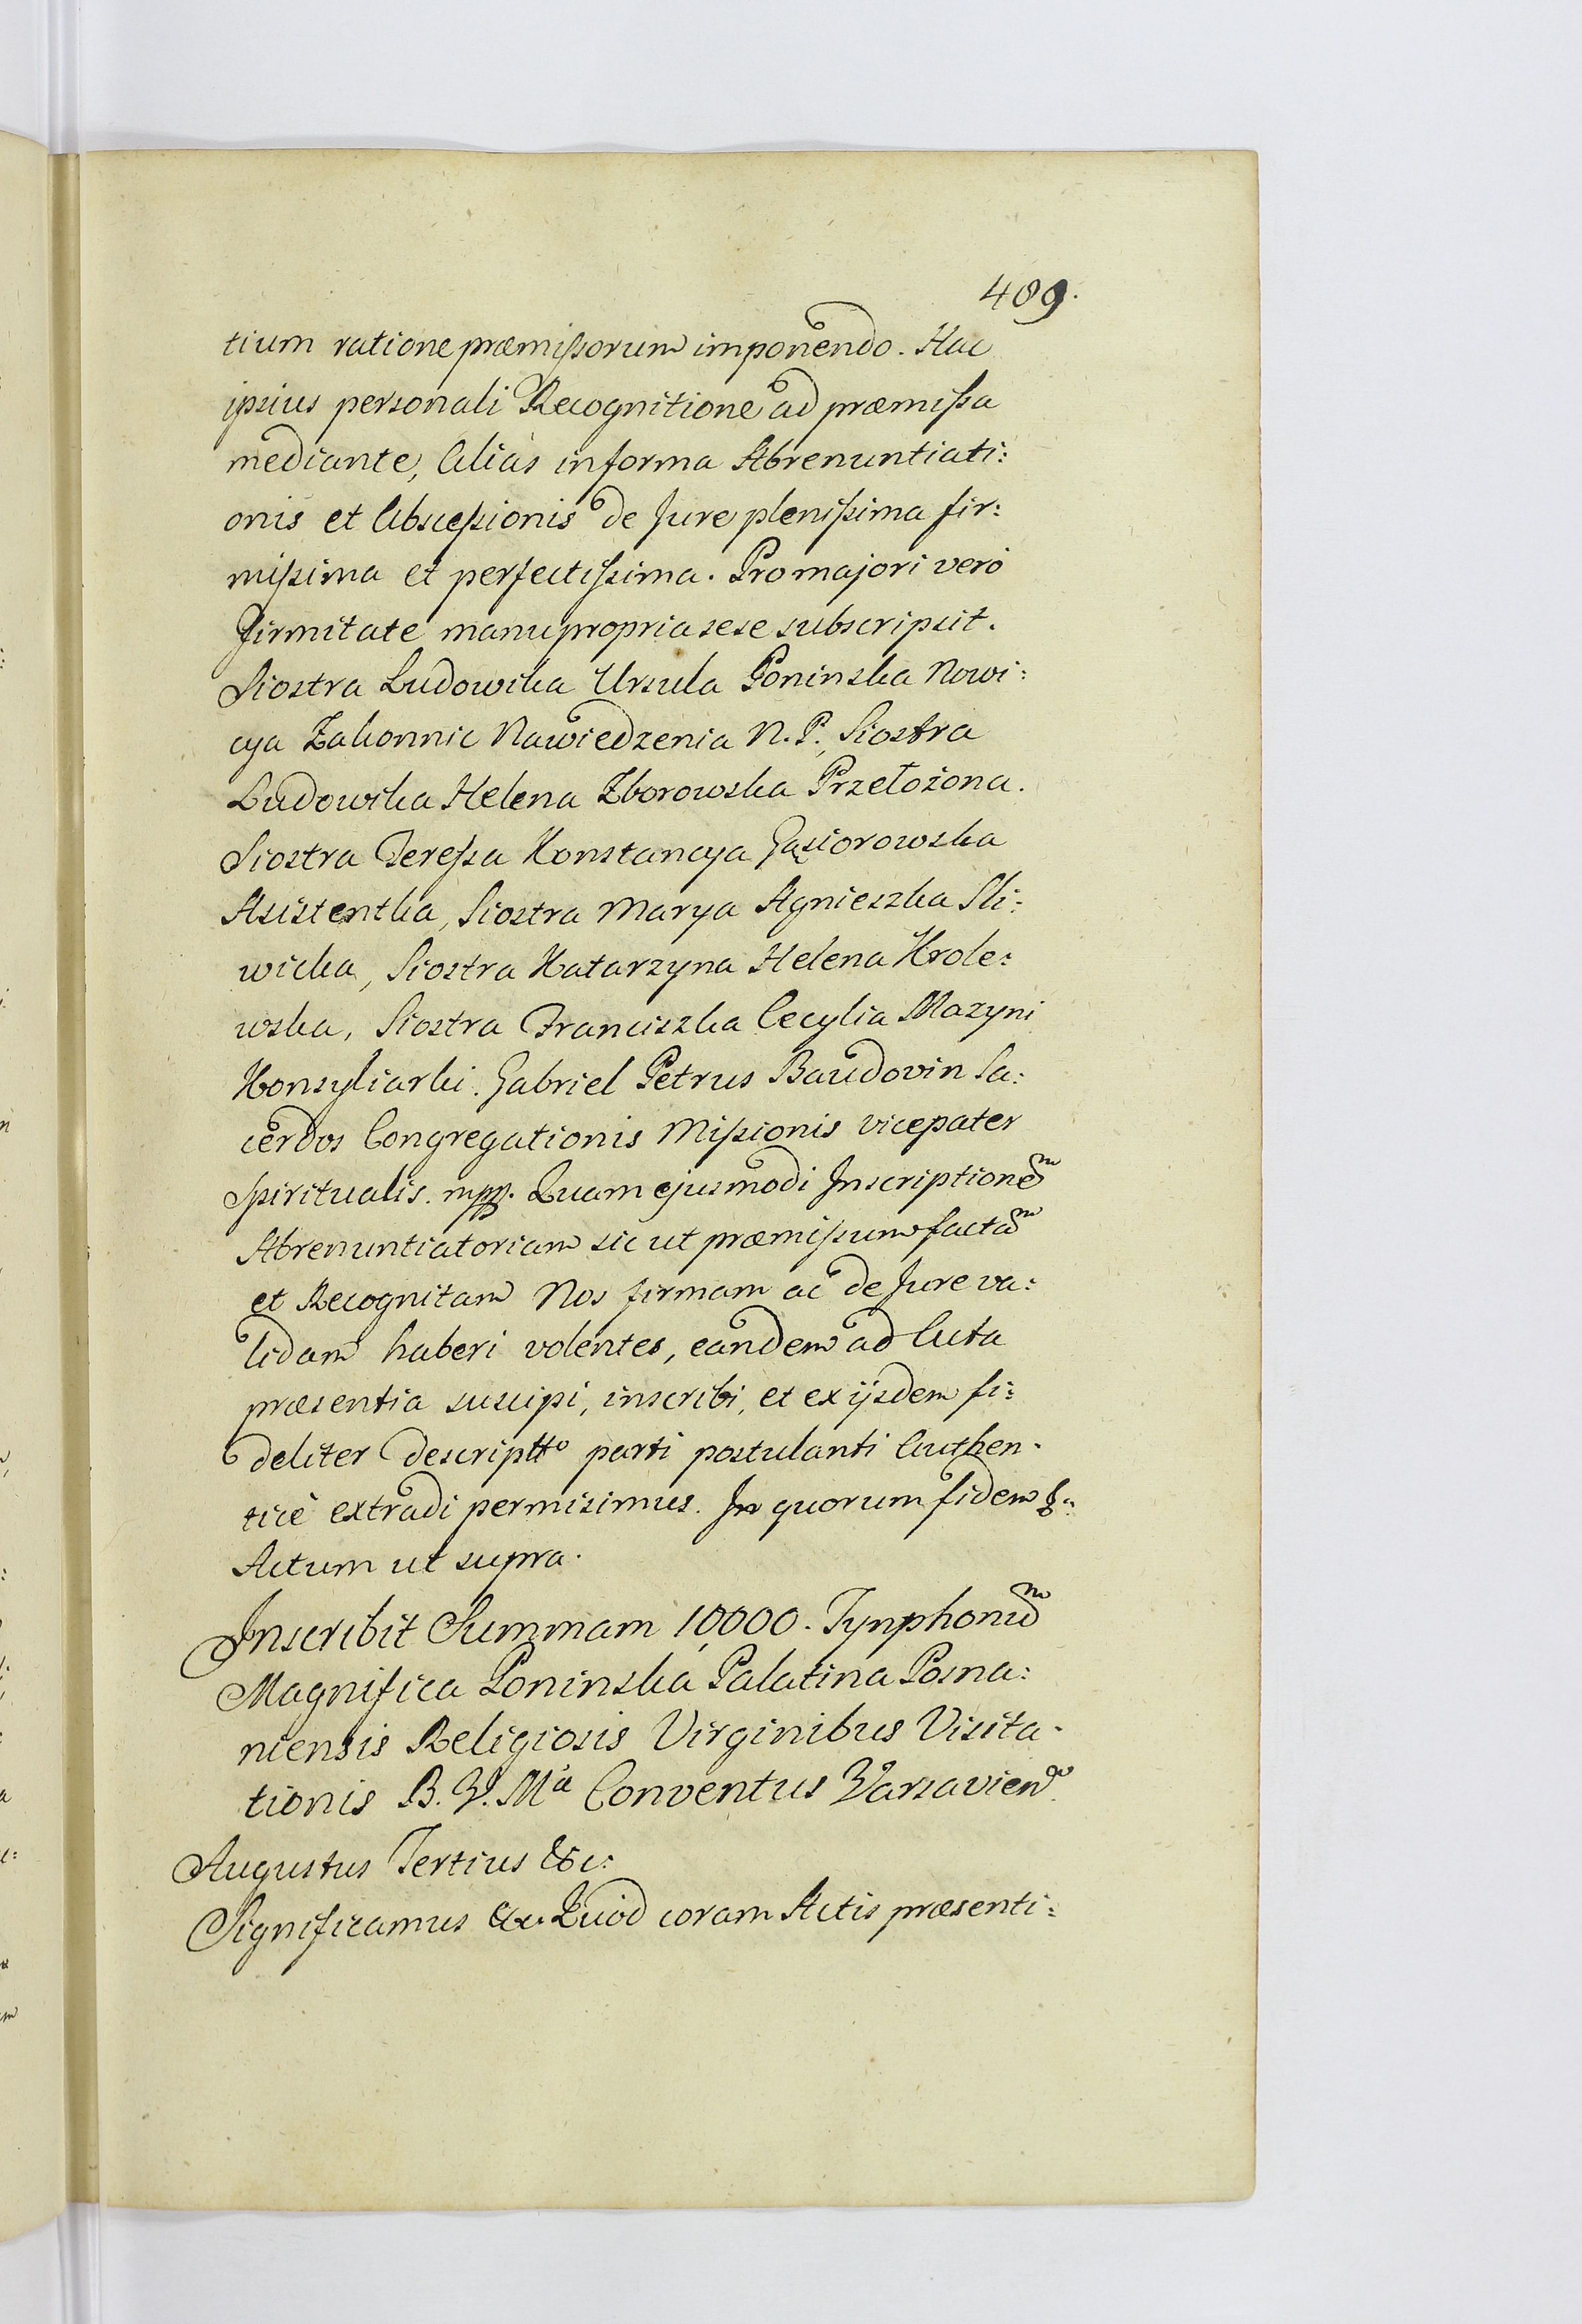 409.
tium ratione præmissorum imponendo. Hac
ipsius personali Recognitione ad præmissa
mediante, Alias in forma Abrenuntiati:
onis et Abscessionis de Jure plenissima fir:
missima et perfectissima. Pro majori verò
firmitate manu propria sese subscripsit.
Siostra Ludowika Ursula Poninska Nowi:
cya Zakonnic Nawiedzenia N. P., Siostra
Ludowika Helena Zborowska Przełożona.
Siostra Teressa Konstancya Gąsiorowska
Asistentka, Siostra Marya Agnieszka Sli:
wicka, Siostra Katarzyna Helena Krole:
wska, Siostra Franciszka Cecylia Mazyni
Konsyliarki. Gabriel Petrus Baudovin Sa:
cerdos Congregationis Missionis vicepater
Spiritualis. mpp. Quam ejusmodi Inscriptionem
Abrenuntiatoriam sic ut præmissum factam
et Recognitam Nos firmam ac de Jure va:
lidam haberi volentes, eandem ad Acta
præsentia suscipi, inscribi, et ex ijsdem fi:
deliter descriptto parti postulanti Authen-
ticè extradi permisimus. In quorum fidem &:
Actum ut supra.
Inscribit Summam 10000. Tynphonum
Magnifica Poninska Palatina Posna:
niensis Religiosis Virginibus Visita-
tionis B. V. Mæ Conventus Varsavien
Augustus Tertius &c:
Significamus &c. Quod coram Actis præsenti: